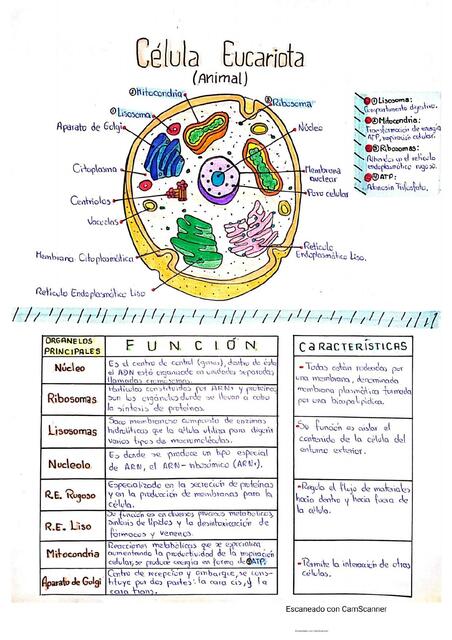 Célula Eucariota
(Animal)
② Mitocondria
③ Ribosoma
① Lisosoma
Aparato de Golgi
Núcleo
Citoplasma
Membrana
nuclear
Centriolos
Poro celular
Vacuolas
Membrana Citoplasmática
Retículo
Endoplasmático Liso.
Retículo Endoplasmático Liso
① Lisosoma:
Compartimento digestivo.
② Mitocondria:
Transformación de energía
ATP, respiración celular.
③ Ribosomas:
retículo
endoplasmático rugoso.
④ ATP:
Adenosín Trifosfato.
ORGANELOS
PRINCIPALES
FUNCIÓN
Núcleo
Es el centro de control (genes), dentro de éste
el ADN está organizado en unidades separadas
llamadas cromosomas.
Ribosomas
Partículas constituidas por ARNr y proteínas,
son los orgánulos donde se llevan a cabo
la síntesis de proteínas.
Lisosomas
Saco membranoso compuesto de enzimas
hidrolíticas que la célula utiliza para digerir
varios tipos de macromoléculas.
Nucleolo
Es donde se produce un tipo especial
de ARN, el ARN-ribosómico (ARNr).
R.E. Rugoso
Especializado en la secreción de proteínas
y en la producción de membranas para la
célula.
R.E. Liso
Su función es en diversos procesos metabólicos,
síntesis de lípidos y la desintoxicación de
fármacos y venenos.
Mitocondria
Reacciones metabólicas que se especializa
aumentando la productividad de la respiración
celular, se produce energía en forma de ④ATP.
Aparato de Golgi
Centro de recepción y embarque, se cons-
tituye por dos partes: la cara cis, y la
cara trans.
CARACTERÍSTICAS
• Todas están rodeadas por
una membrana, denominada
membrana plasmática formada
por una bicapalipídica.
• Su función es aislar el
contenido de la célula del
entorno exterior.
• Regula el flujo de materiales
hacia dentro y hacia fuera de
la célula.
• Permite la interacción de otras
células.
Escaneado con CamScanner